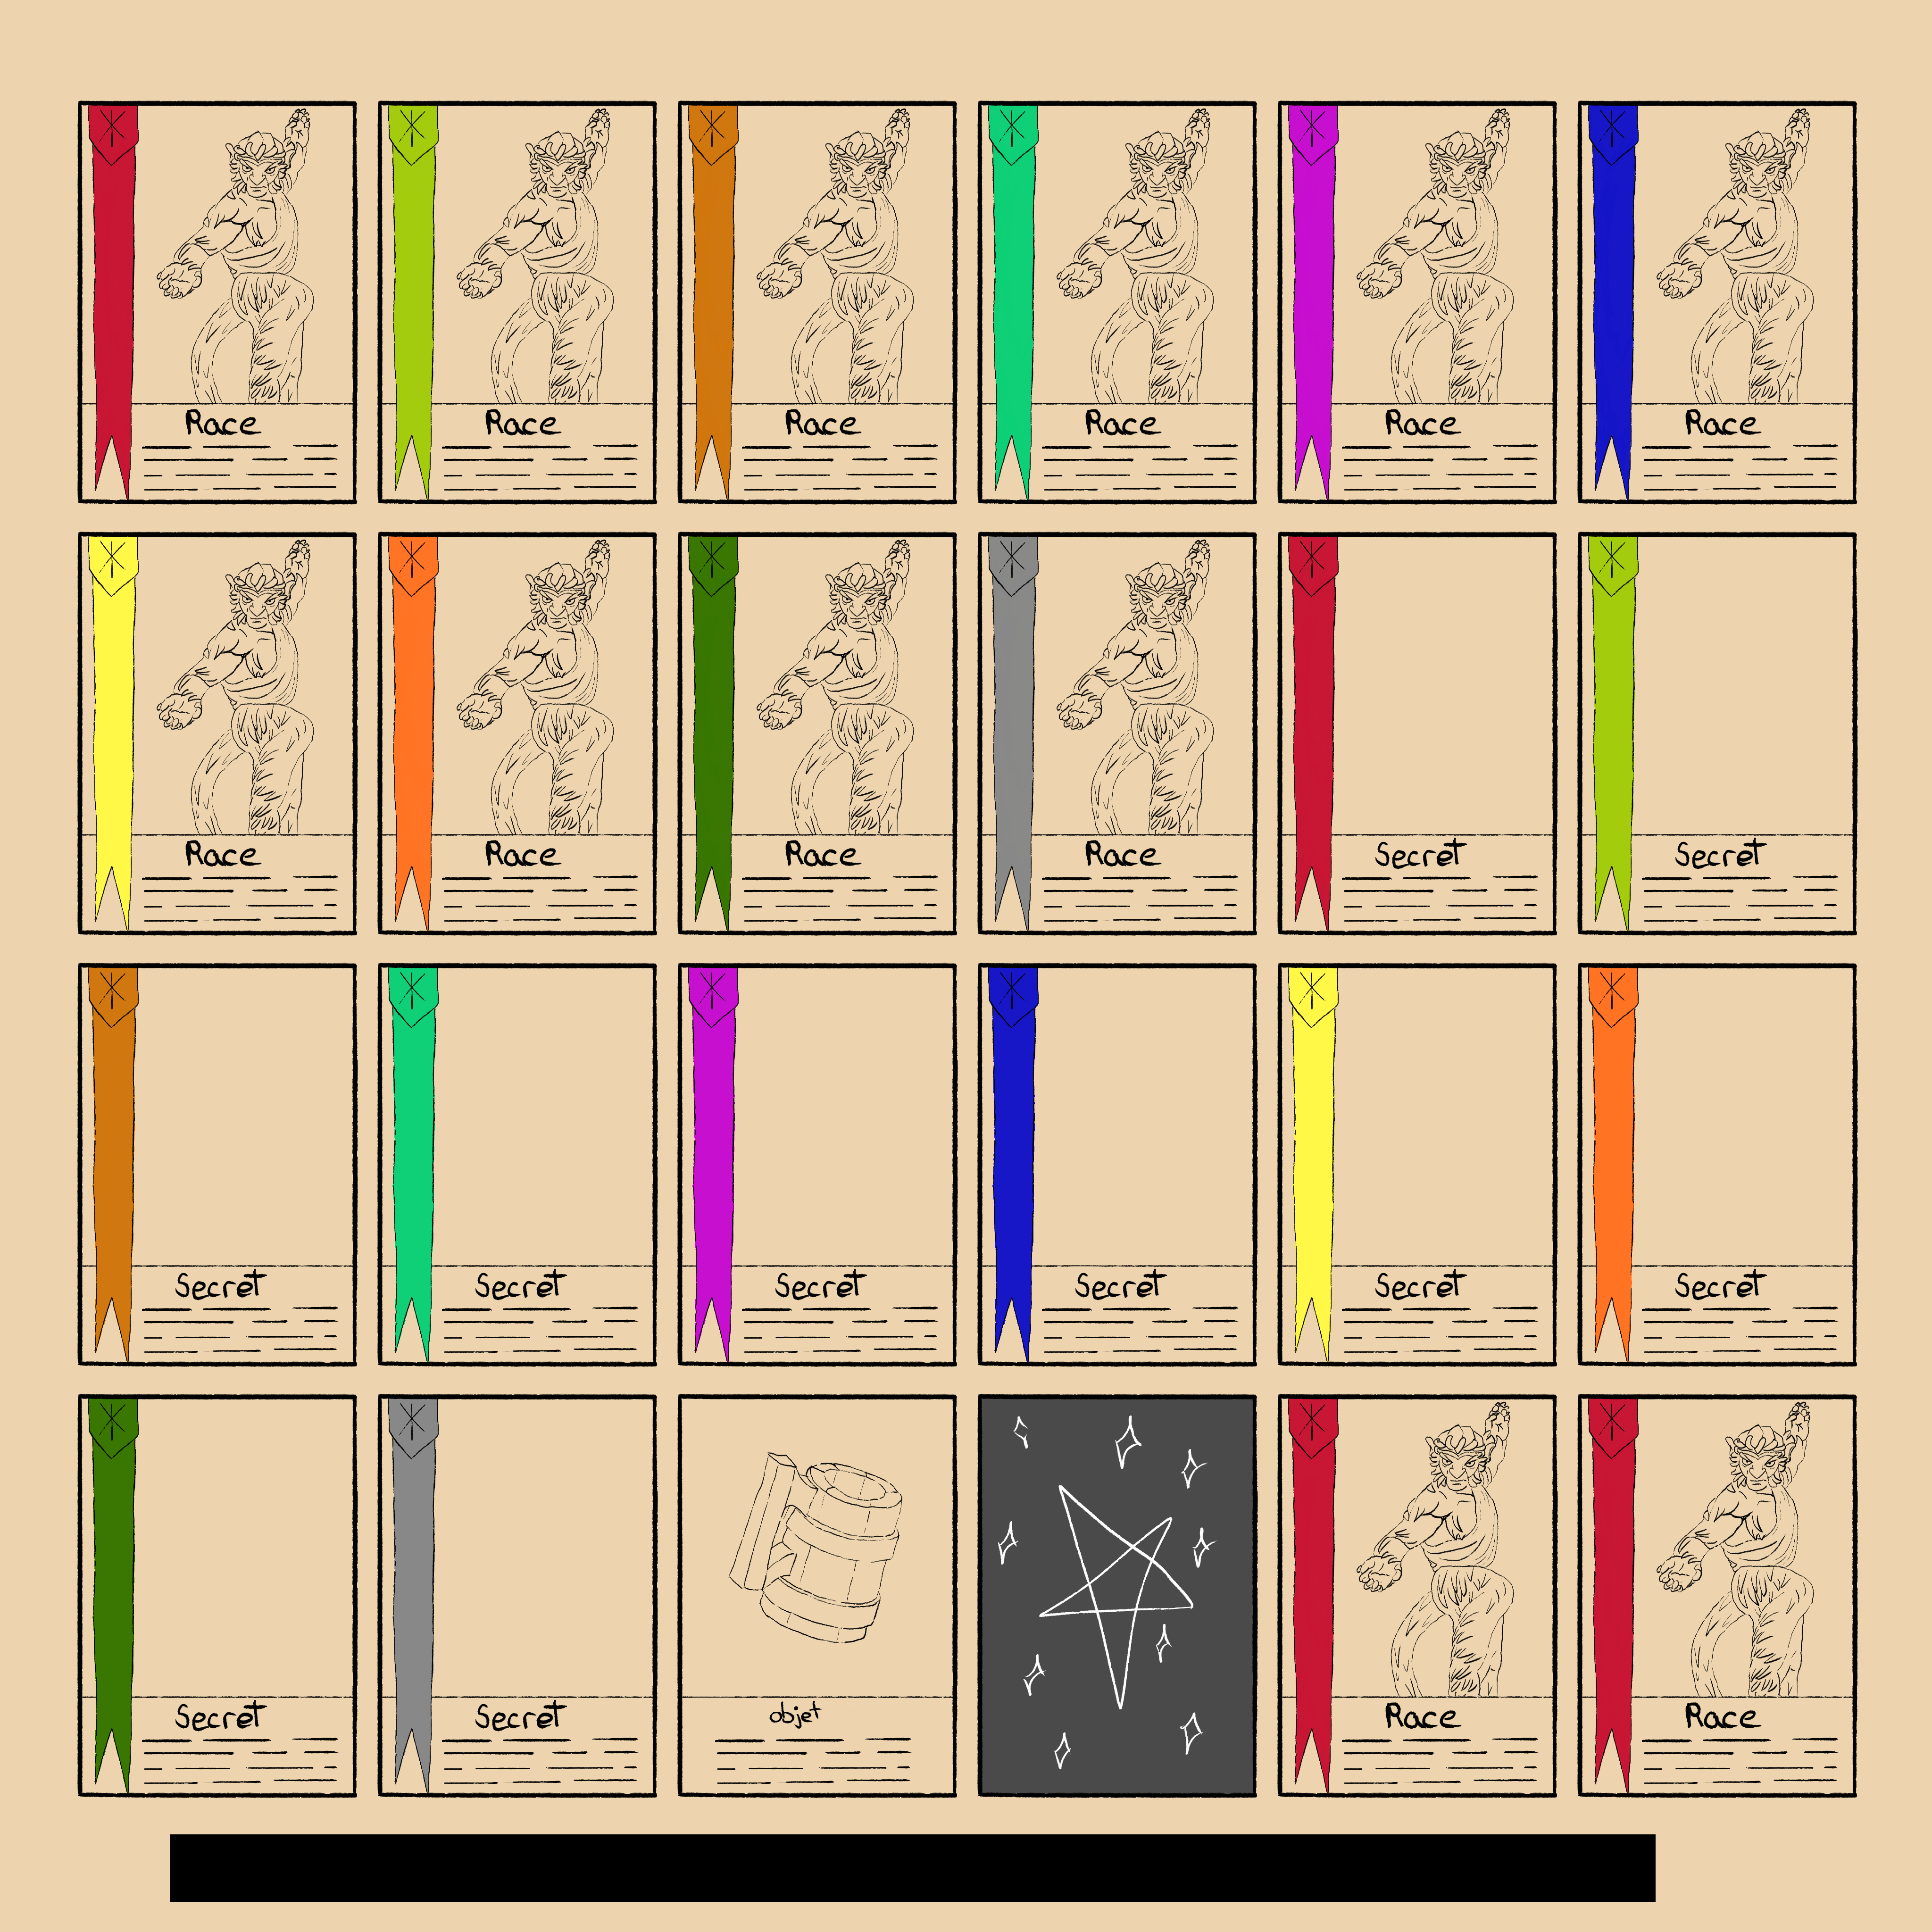 Race
Race
Race
Race
Race
Race
Race
Race
Race
Race
Secret
Secret
Secret
Secret
Secret
Secret
Secret
Secret
Secret
Secret
objet
Race
Race